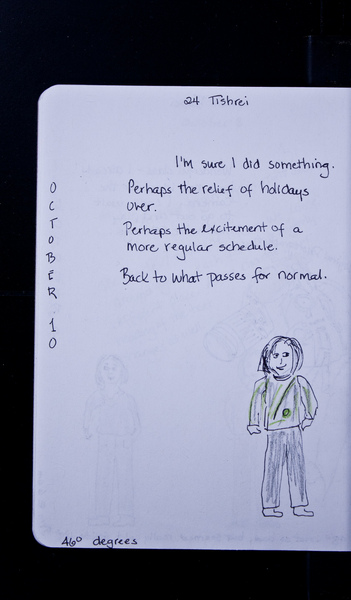 24 Tishrei
I'm sure I did something.
Perhaps the relief of holidays
over.
Perhaps the excitement of a
more regular schedule.
Back to what passes for normal.
OCTOBER 10
46° degrees